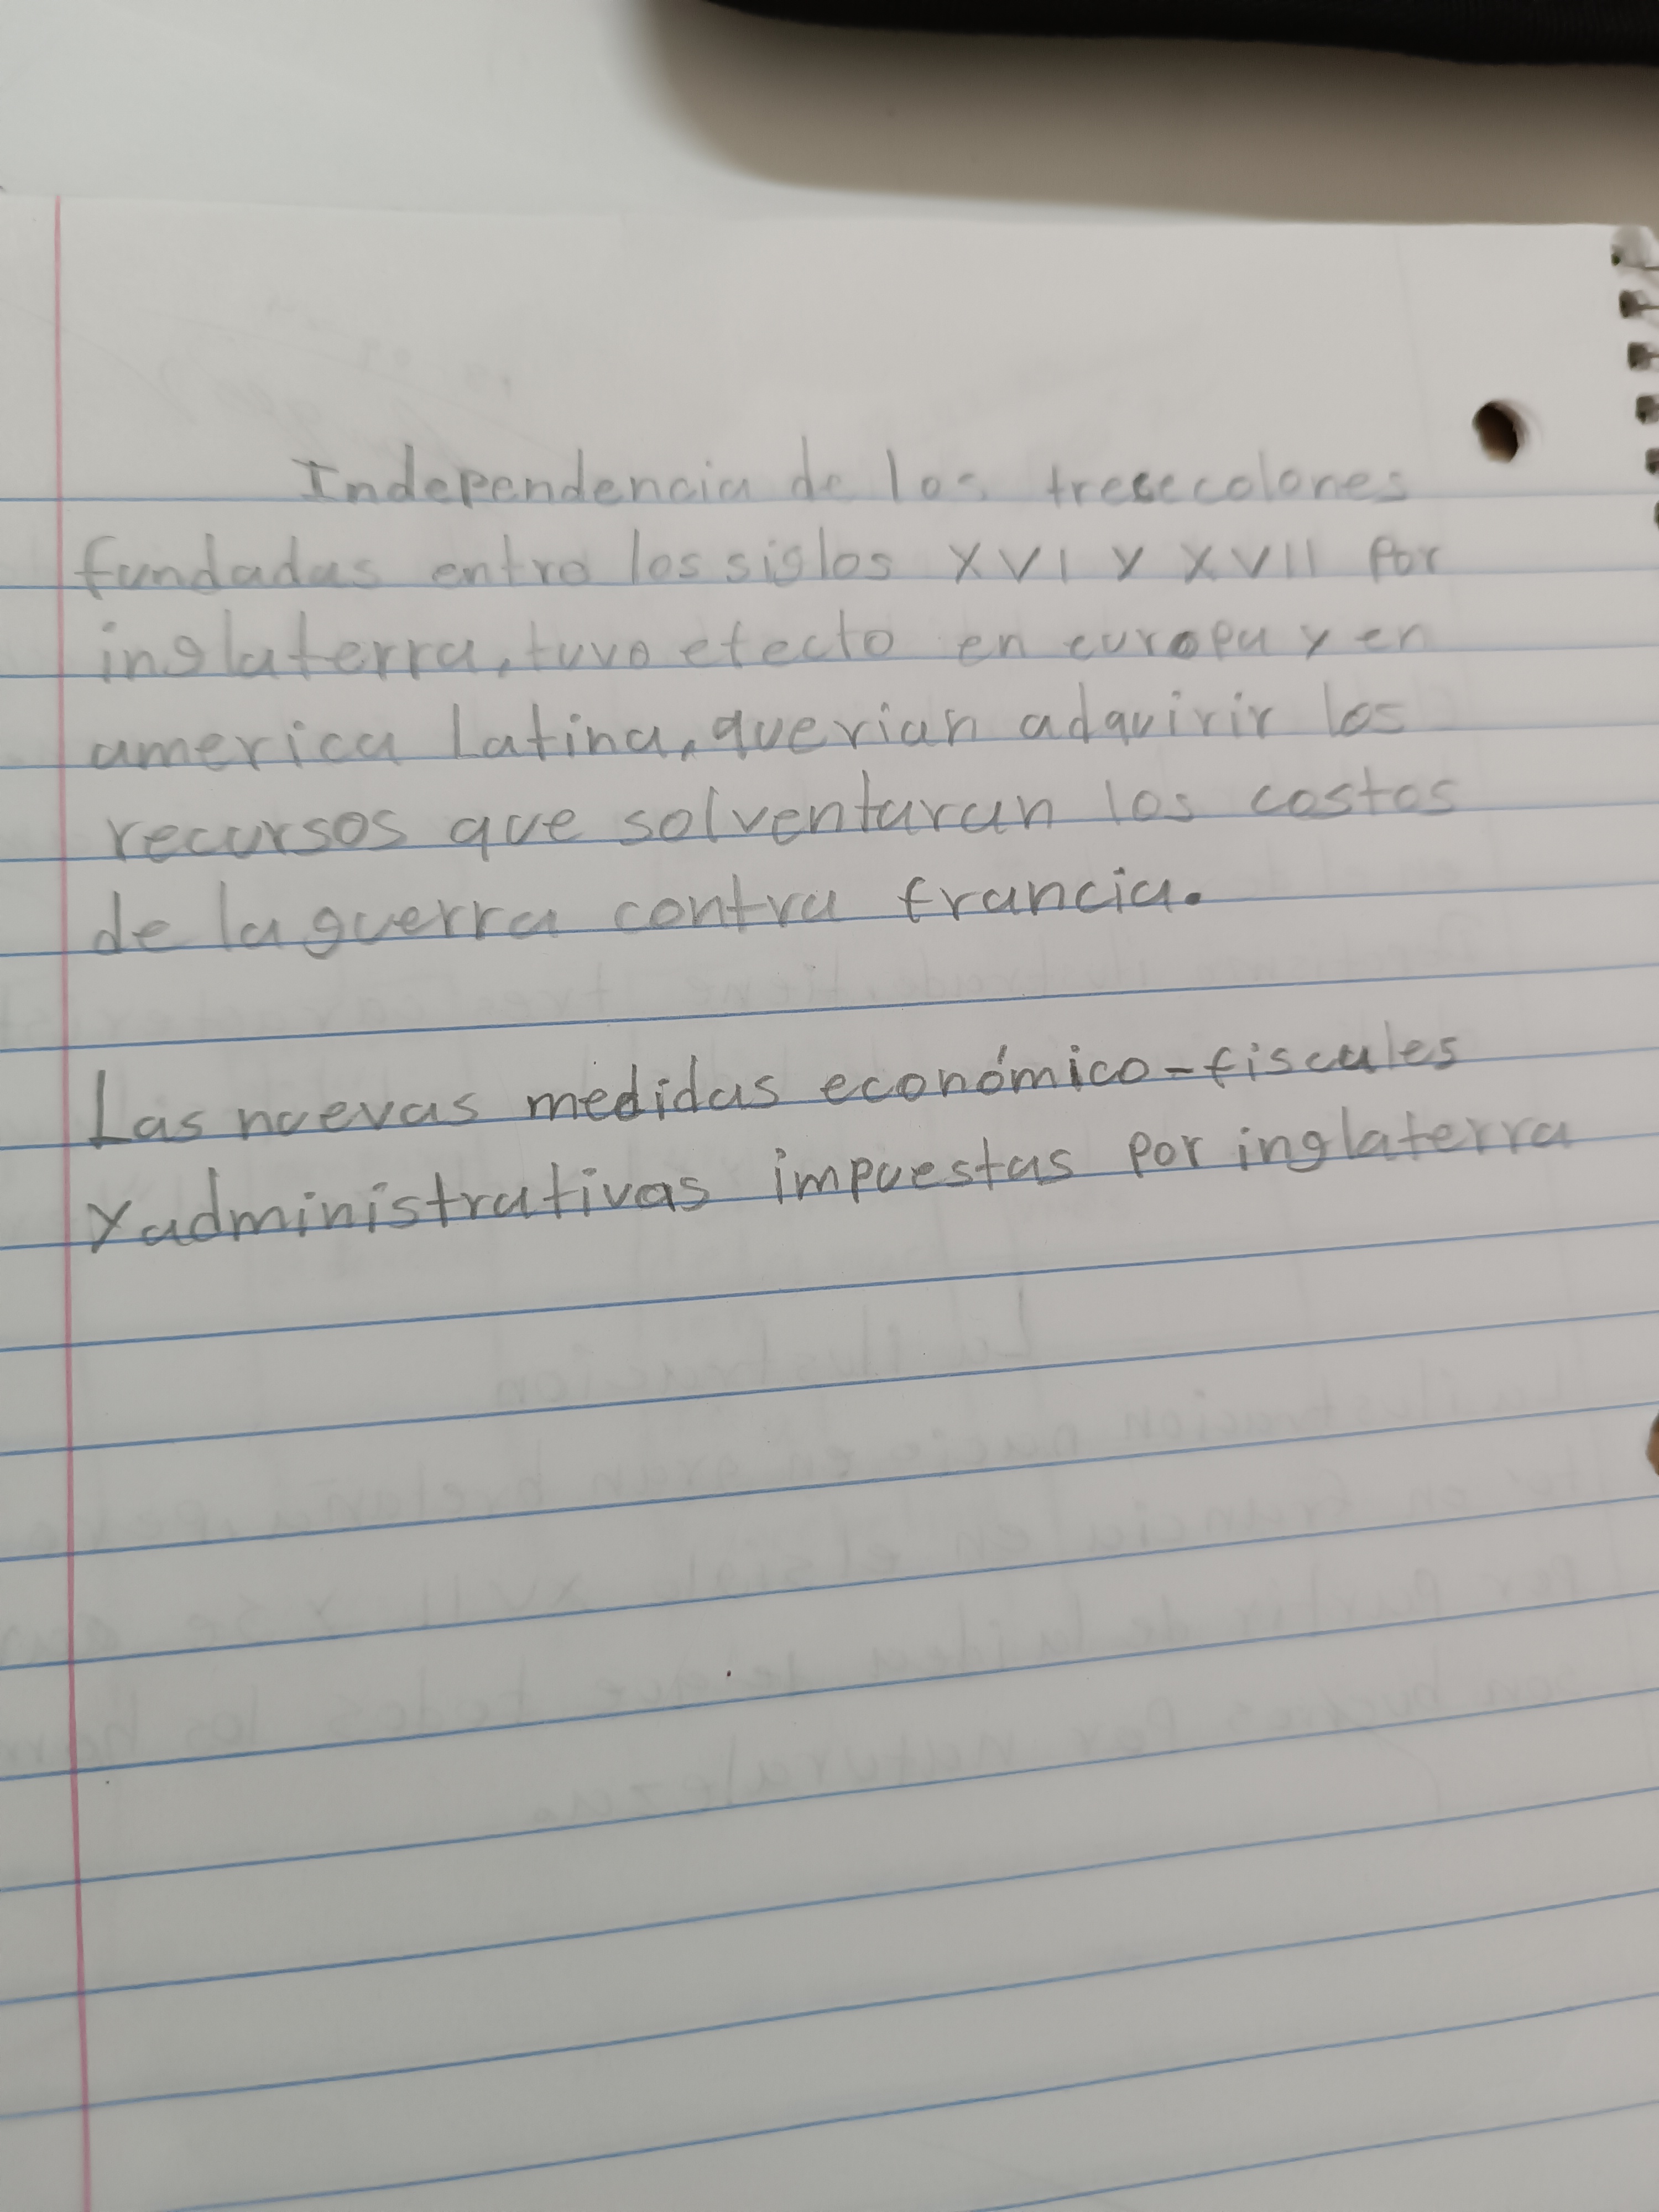 Independencia de los tresecolones
fundadas entre los siglos XVI y XVII por
inglaterra, tuvo efecto en europa y en
america Latina, querian adquirir los
recursos que solventaran los costos
de la guerra contra francia.
Las nuevas medidas económico-fiscales
y administrativas impuestas por inglaterra